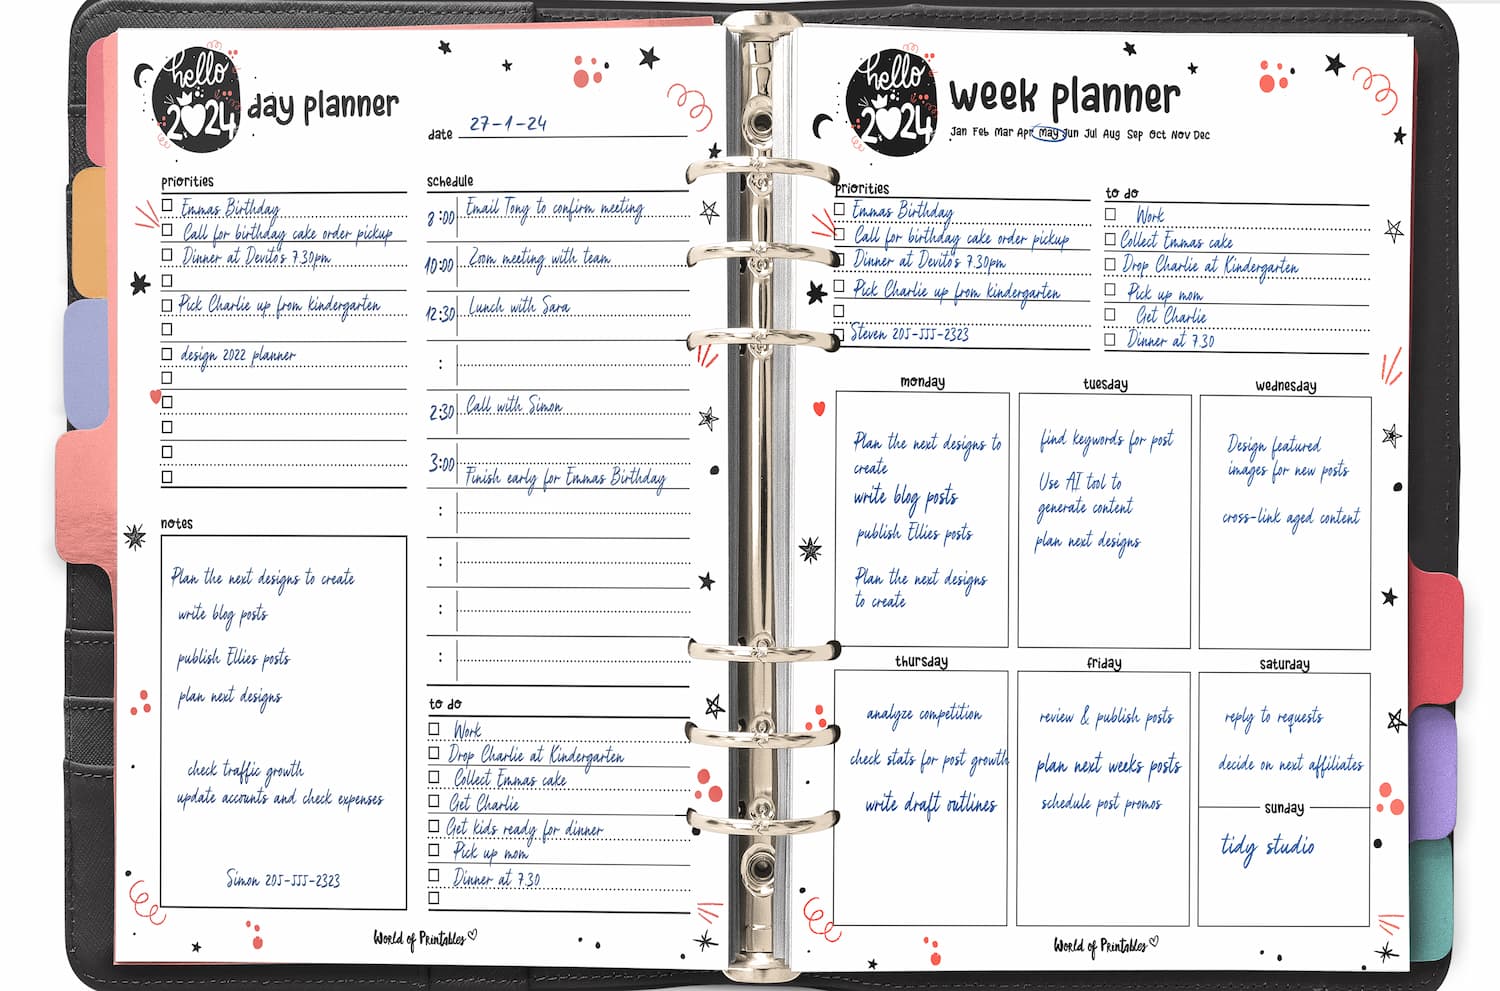 hello
2024
day planner
date 27-1-24
priorities
Emmas Birthday
Call for birthday cake order pickup
Dinner at Devito's 7.30pm
Pick Charlie up from kindergarten
design 2022 planner
notes
Plan the next designs to create
write blog posts
publish Ellies posts
plan next designs
check traffic growth
update accounts and check expenses
Simon 205-555-2323
schedule
8:00 Email Tony to confirm meeting
10:00 Zoom meeting with team
12:30 Lunch with Sara
:
2:30 Call with Simon
3:00
Finish early for Emmas Birthday
:
:
:
:
to do
Work
Drop Charlie at Kindergarten
Collect Emmas cake
Get Charlie
Get kids ready for dinner
Pick up mom
Dinner at 7.30
World of Printables
hello
2024
week planner
Jan Feb Mar Apr May Jun Jul Aug Sep Oct Nov Dec
priorities
Emmas Birthday
Call for birthday cake order pickup
Dinner at Devito's 7.30pm
Pick Charlie up from kindergarten
Steven 205-555-2323
to do
Work
Collect Emmas cake
Drop Charlie at Kindergarten
Pick up mom
Get Charlie
Dinner at 7.30
monday
Plan the next designs to
create
write blog posts
publish Ellies posts
Plan the next designs
to create
tuesday
find keywords for post
Use AI tool to
generate content
plan next designs
wednesday
Design featured
images for new posts
cross-link aged content
thursday
analyze competition
check stats for post growth
write draft outlines
friday
review & publish posts
plan next weeks posts
schedule post promos
saturday
reply to requests
decide on next affiliates
sunday
tidy studio
World of Printables